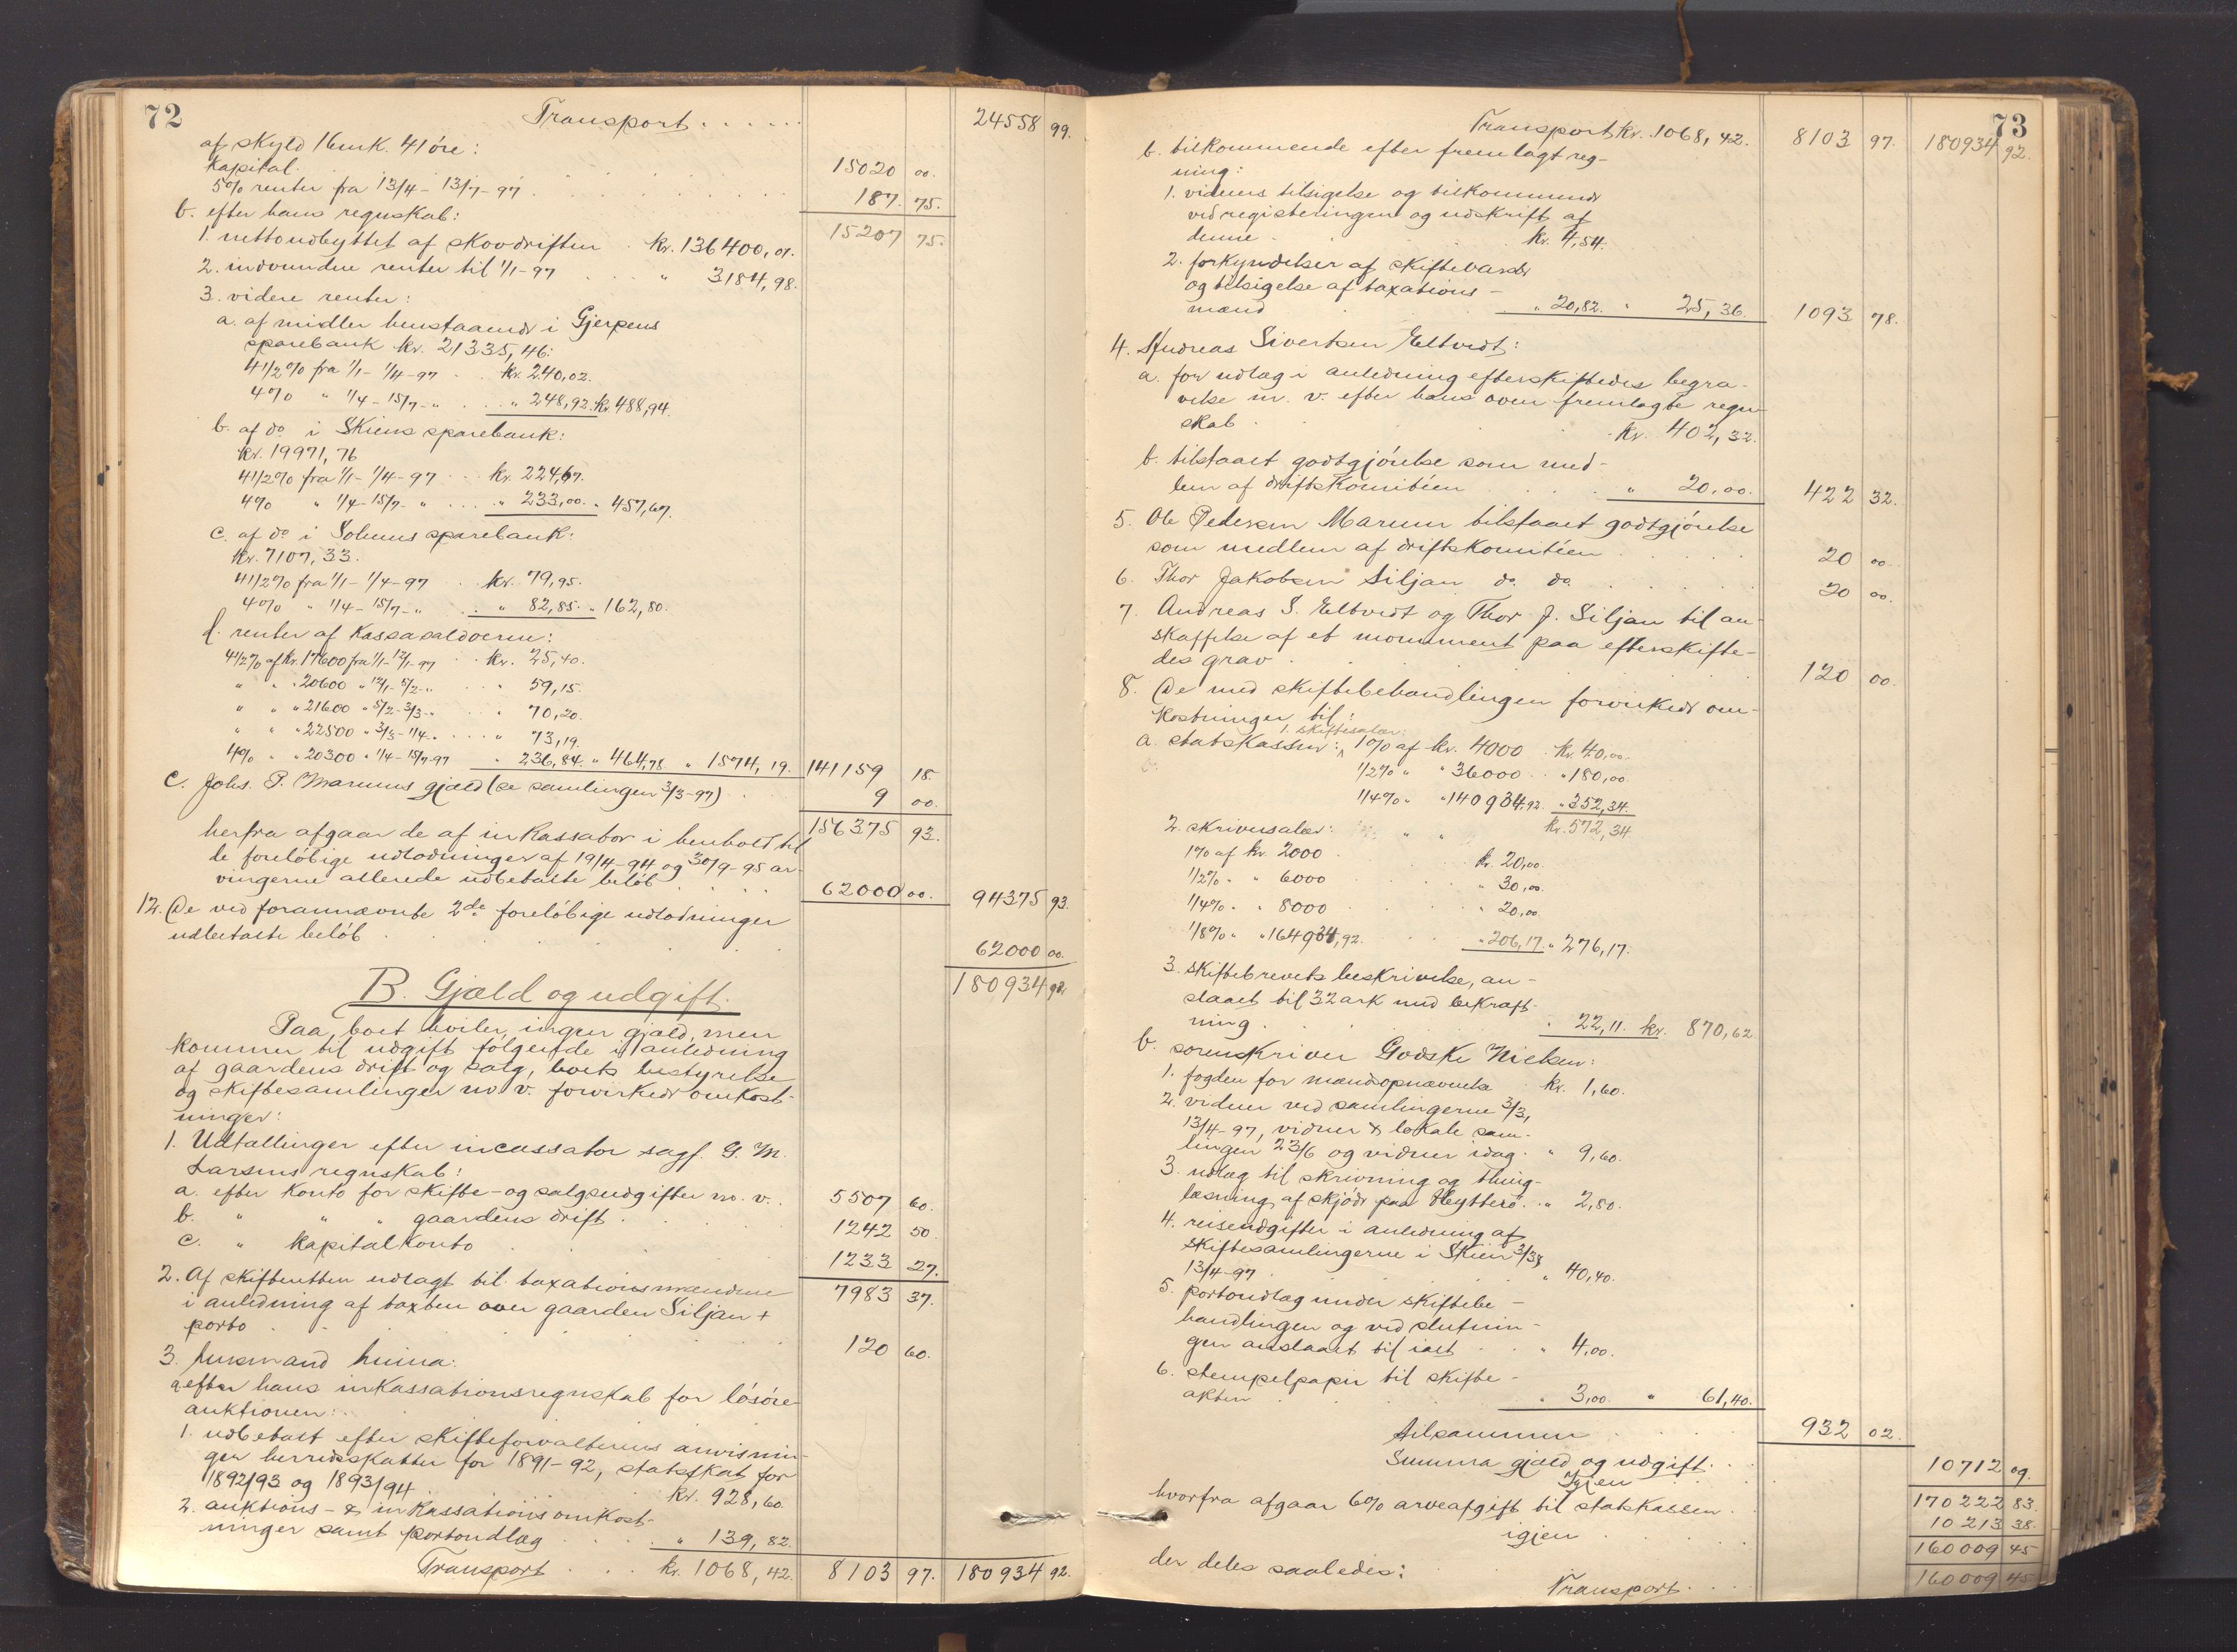 72
Transport . . . . . . 24558 99.
af skyld 16 mk. 41 öre:
Kapital. . . . 15020 00.
5% renter fra 13/4 - 13/7 - 97 . . . 187. 75.
15207 75.
b. efter hans regnskab:
1. nettoudbyttet af skovdriften . kr. 136400,01.
2. indvundne renter til 1/1-97 . . . " 3184,98.
3. videre renter:
a. af midler henstaaende i Gjerpens
sparebank kr. 21335,46:
4 1/2% fra 1/1 - 1/4-97 . . kr. 240,02.
4% " 1/4 - 15/7 - " . . . " 248,92. kr. 488,94.
b. af do i Skiens sparebank:
kr. 19971,76
4 1/2% fra 1/1 - 1/4-97 . . kr. 224,67.
4% " 1/4 - 15/7 - " . . . " 233,00. " 457,67.
c. af do i Solums sparebank:
kr. 7107,33.
4 1/2% fra 1/1 - 1/4-97 . . kr. 79,95.
4% " 1/4 - 15/7 - " . . " 82,85. " 162,80.
d. renter af kassasaldoerne:
4 1/2% af kr. 17600 fra 1/1 - 12/1-97 . . kr. 25,40.
" " " 20600 " 12/1 - 5/2 - " . . . " 59,15.
" " " 21600 " 5/2 - 3/3 - " . . " 70,20.
" " " 22500 " 3/3 - 1/4 - " . . . . " 73,19.
4% " " 20300 " 1/4 - 15/7-97 " 236,84. " 464,78 " 1574,19. 141159 18.
c. Johs. P. Marums gjæld (se samlingen 3/3-97) . . . 9 00.
156375 93.
herfra afgaar de af inkassator i henhold til
de foreløbige udlodninger af 19/4-94 og 30/9-95 ar-
vingerne allerede udbetalte beløb . . . . 62000 00. 94375 93.
12. De ved forannævnte 2de foreløbige udlodninger
udbetalte beløb . . . . . . 62000 00.
180934 92.
B. Gjæld og udgift.
Paa boet hviler ingen gjæld, men
kommer til udgift følgende i anledning
af gaardens drift og salg, boets bestyrelse
og skiftesamlinger m. v. forvirkede omkost-
ninger:
1. Udtællinger efter incassator sagf. G. M.
Larsens regnskab:
a. efter konto for skifte- og salgsudgifter m. v. . 5507 60.
b. " " " gaardens drift . . . . 1242 50.
c. " kapitalkonto . . . . 1233 27.
7983 37.
2. Af skifteretten udlagt til taxationsmændene
i anledning af taxten over gaarden Siljan +
porto . . . . . . 120 60.
3. lensmand
a. efter hans inkassationsregnskab for løsøre-
auktionen:
1. udbetalt efter skifteforvalterens anvisnin-
ger herredsskatter for 1891-92, statsskat for
1892/93 og 1893/94 . . . . kr. 928,60.
2. auktions- & inkassationsomkost-
ninger samt portoudlæg . . . . " 139,82.
Transport . . . kr. 1068,42. 8103 97. 180934 92.
73
Transport kr. 1068,42. 8103 97. 180934 92.
b. tilkommende efter fremlagt reg-
ning:
1. vidners tilsigelse og tilkommende
ved registreringen og udskrift af
denne . . . . . kr. 4,54.
2. forkyndelser af skiftevarsler
og tilsigelse af taxations-
mænd . . . " 20,82. " 25,36. 1093 78.
4. Andreas Sivertsen Eltvedt:
a. for udlæg i anledning efterskiftedes begra-
velse m. v. efter hans oven fremlagte regn-
skab . . . . . . kr. 402,32.
b. tilstaaet godtgjørelse som med-
lem af driftskomitéen . . . . " 20,00. 422 32.
5. Ole Pedersen Marum tilstaaet godtgjørelse
som medlem af driftskomitéen . . . . . 20 00.
6. Thor Jakobsen Siljan do. do. . . . . . 20 00.
7. Andreas S. Eltvedt og Thor J. Siljan til an-
skaffelse af et monument paa efterskifte-
des grav . . . . . . 120 00.
8. De med skiftebehandlingen forvirkede om-
kostninger til:
1. skiftesalær:
a. statskassen: 1% af kr. 4000 . kr. 40,00.
1/2% " " 36000 . . " 180,00.
1/4% " " 140934,92. " 352,34.
kr. 572,34.
2. skriversalær:
1% af kr. 2000 . . . kr. 20,00.
1/2% " " 6000 . . . " 30,00.
1/4% " " 8000 . . . " 20,00.
1/8% " " 164934,92. . . " 206,17. " 276,17.
3. skiftebrevets beskrivelse, an-
slaaet til 32 ark med bekræft-
ning . . . . . " 22,11. kr. 870,62.
b. sorenskriver Godske Nielsen:
1. fogden for mændsopnævnelse . kr. 1,60.
2. vidner ved samlingerne 3/3,
13/4-97, vidner & lokale sam-
lingen 23/6 og vidner idag . " 9,60.
3. udlæg til skrivning og thing-
læsning af skjøde paa Heytterø . " 2,80.
4. reiseudgifter i anledning af
skiftesamlingerne i Skien 3/3 &
13/4-97 . . . . . " 40,40.
5. portoudlæg under skiftebe-
handlingen og ved slutnin-
gen anslaaet til ialt . . " 4,00.
6. stempelpapir til skifte-
akten . . . . " 3,00. " 61,40.
932 02.
tilsammen . . . .
Summa gjæld og udgift . . 10712 09.
Igjen . . 170222 83.
hvorfra afgaar 6% arveafgift til statskassen . . 10213 38.
igjen . . . 160009 45
der deles saaledes:
Transport . . . 160009 45